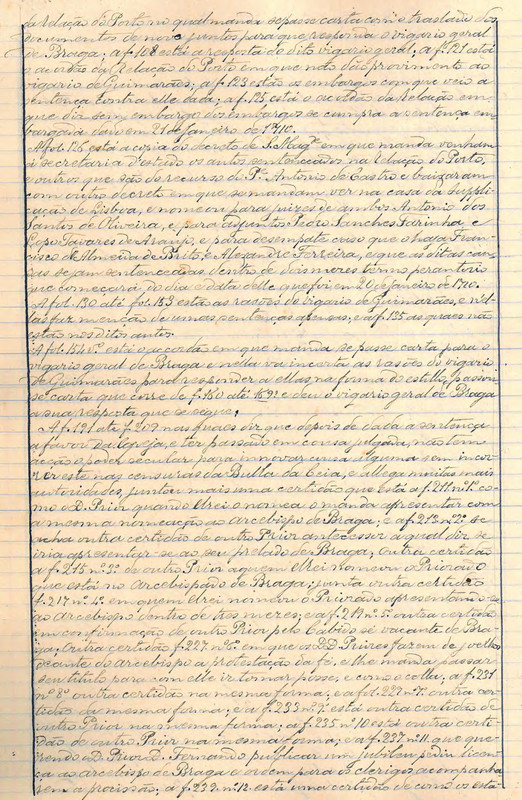 da Relação do Porto no qual manda se passe carta com o traslado dos
documentos de novo juntos para que responda o vigario geral
de Braga. a f. 108 está a resposta do dito vigario geral; a f. 121 está
o acordão da Relação do Porto em que não dão provimento ao
vigario de Guimarães; a f. 123 estão os embargos com que veio a
sentença contra elle dada; a f. 125 está o acordão da Relação em
que diz sem embargo dos embargos se cumpra a sentença em-
bargada dou em 21 de Janeiro de 1710.
A fol. 126 está a copia do decreto de S. Magᵉ em que manda venham
á secretaria d'Estado os autos sentenciados na Relação do Porto,
e outros que são do recurso de Pᵉ Antonio de Castro e baixaram
com outro decreto em que se mandam ver na casa da Suppli-
cação de Lisboa, e nomeou para juizes de ambos Antonio dos
Santos de Oliveira, e para adjuntos Pedro Sanches Farinha e
Lopo Tavares de Araujo, e para desempate caso que o haja Fran-
cisco de Almeida de Brito, e Alexandre Ferreira, e que as ditas cau-
sas sejam sentenceadas dentro de dous mezes termo peremtorio
que começará do dia e data delle que foi em 20 de Janeiro de 1710.
A fol. 130 até fol. 153 estão as rasões do vigario de Guimarães, e nel-
las faz menção de umas sentenças apensas, e a f. 135 as quaes não
estão nos ditos autos.
A fol. 154 vº está o acordão em que manda se passe carta para o
vigario geral de Braga e nella vá incerta as rasões do vigario
de Guimarães para responder a ellas na forma do estillo, passou
se carta que corre de f. 160 até 1892 e deu o vigario geral de Braga
a sua resposta que se segue;
A f. 191 até f. 209 nas quaes diz que depois de dada a sentença
a favor da Igreja, e ter passado em cousa julgada, não tem
acção o poder secular para innovar cousa alguma sem incor-
rer esta nas censuras da Bulla da Ceia, e allega muitas mais
autoridades, juntou mais uma certidão que está a f. 211 nº 1º co-
mo o D. Prior quando Elrei o nomea o manda apresentar com
a mesma nomeação ao arcebispo de Braga; e a f. 213 nº 2º se
acha outra certidão de outro Prior antecessor a qual diz se
iria apresentar-se ao seu prelado de Braga; Outra certidão
a f. 215 nº 3º de outro Prior a quem Elrei nomeou o Priorado
que está no Arcebispado de Braga; junta outra certidão
f. 217 nº 4º em quem Elrei nomeou o Priorado apresentando-se
ao Arcebispo dentro de tres mezes; e a f. 219 nº 5º outra certidão
em confirmação de outro Prior pelo Cabido sé vacante de Bra-
ga; Outra certidão f. 227 nº 6º em que os DD. Priores fazem de joelhos
deante do Arcebispo a protestação da fé, e lhe manda passar
seu titulo para com elle ir tomar posse, e como o colla; a f. 231
nº 8º outra certidão na mesma forma; e a fol. 222 nº 7º outra cer-
tidão da mesma forma; e a f. 235 nº 9º está outra certidão de
outro Prior na mesma forma; a f. 235 nº 10 está outra certi-
dão de outro Prior na mesma forma; e a f. 237 nº 11 que que-
rendo o D. Prior D. Fernando publicar um jubileu pediu licen-
ça ao arcebispo de Braga e ordem para os clerigos acompanha-
rem a procissão; a f. 239 nº 12 está uma certidão de como os está-